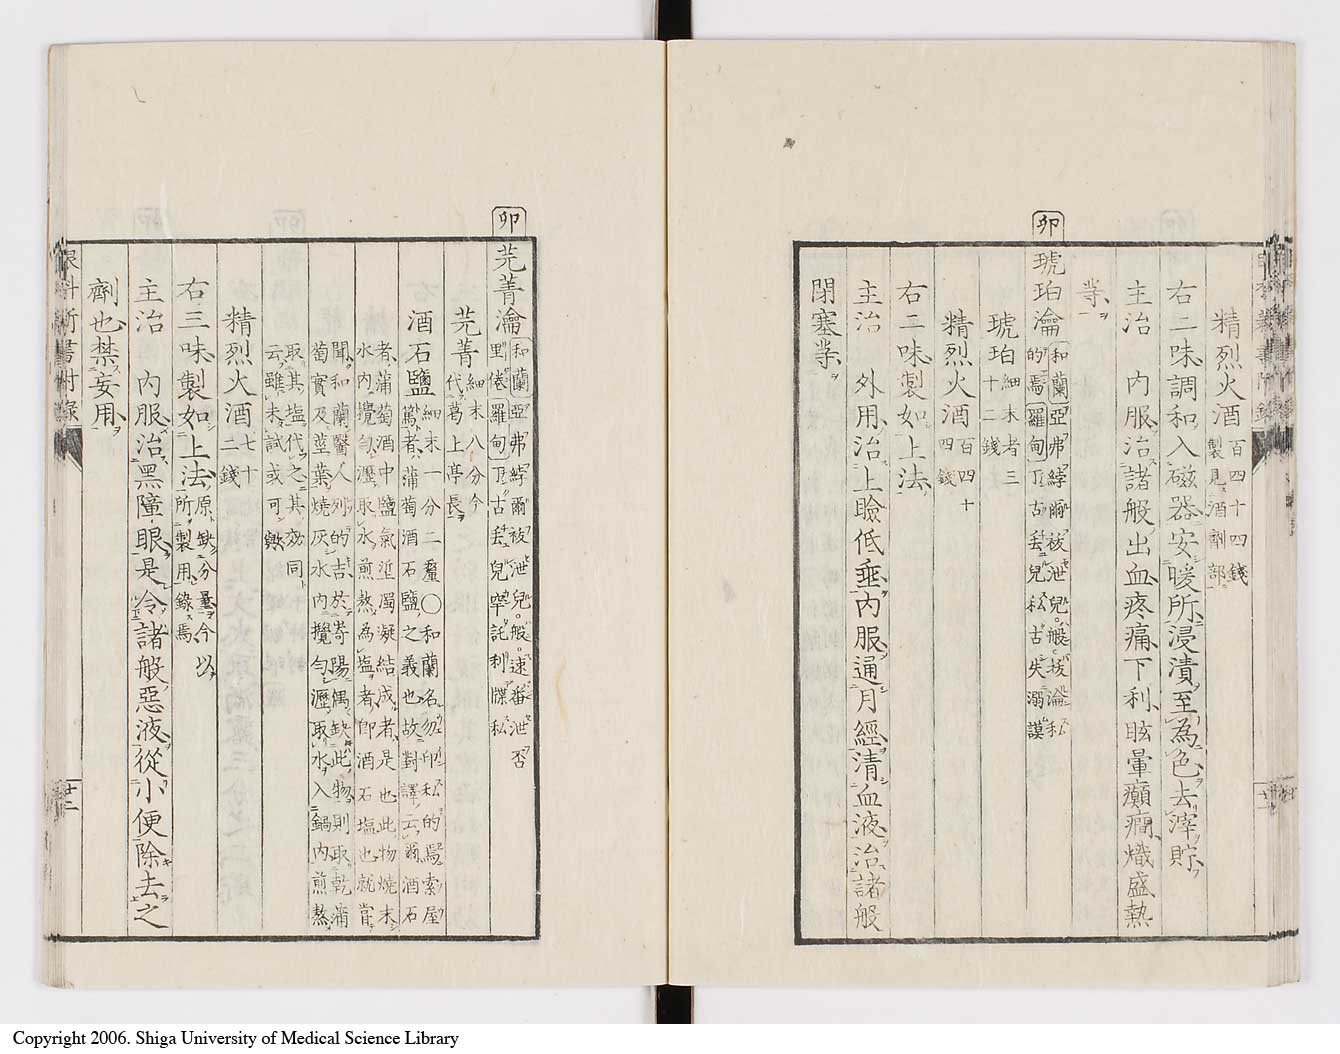 精烈火酒 百四十四錢 製見酒劑部
右二味調和入磁器安暖所浸漬至為色去滓貯
主治 内服治諸般出血疼痛下利眩暈癲癇熾盛熱
等
卯
琥珀瀹 和蘭 亞弗綍爾被泄兒般抜瀹私
的焉 羅甸 丁古丢兒私古失溺謨
琥珀 細末者三十二錢
精烈火酒 百四十四錢
右二味製如上法
主治 外用治上瞼低垂内服通月經清血液治諸般
閉塞等
卯
芫菁瀹 和蘭 亞弗綍爾被泄兒般速番泄否
里倦 羅甸 丁古丢兒罕託利牒私
芫菁 細末八分今代葛上亭長
酒石鹽 細末一分二釐○和蘭名勿印私的焉索屋
篤者蒲萄酒石鹽之義也故對譯云爾酒石
者蒲萄酒中鹽氣近濁凝結成者是也此物燒末
水内攪勻瀝取水煎熬為塩者即酒石塩也就當
聞和蘭醫人列的吉於嵜陽偶缺此物則取乾蒲
萄實及莖葉燒灰水内攪勻瀝取水入鍋内煎熬
取其塩代之其效同
云雖未試或可歟
精烈火酒 七十二錢
右三味製如上法 原缺分量今以所製用錄焉
主治 内服治黑障眼是令諸般惡液從小便除去之
劑也禁妄用
眼科新書附錄
廿二
Copyright 2006. Shiga University of Medical Science Library